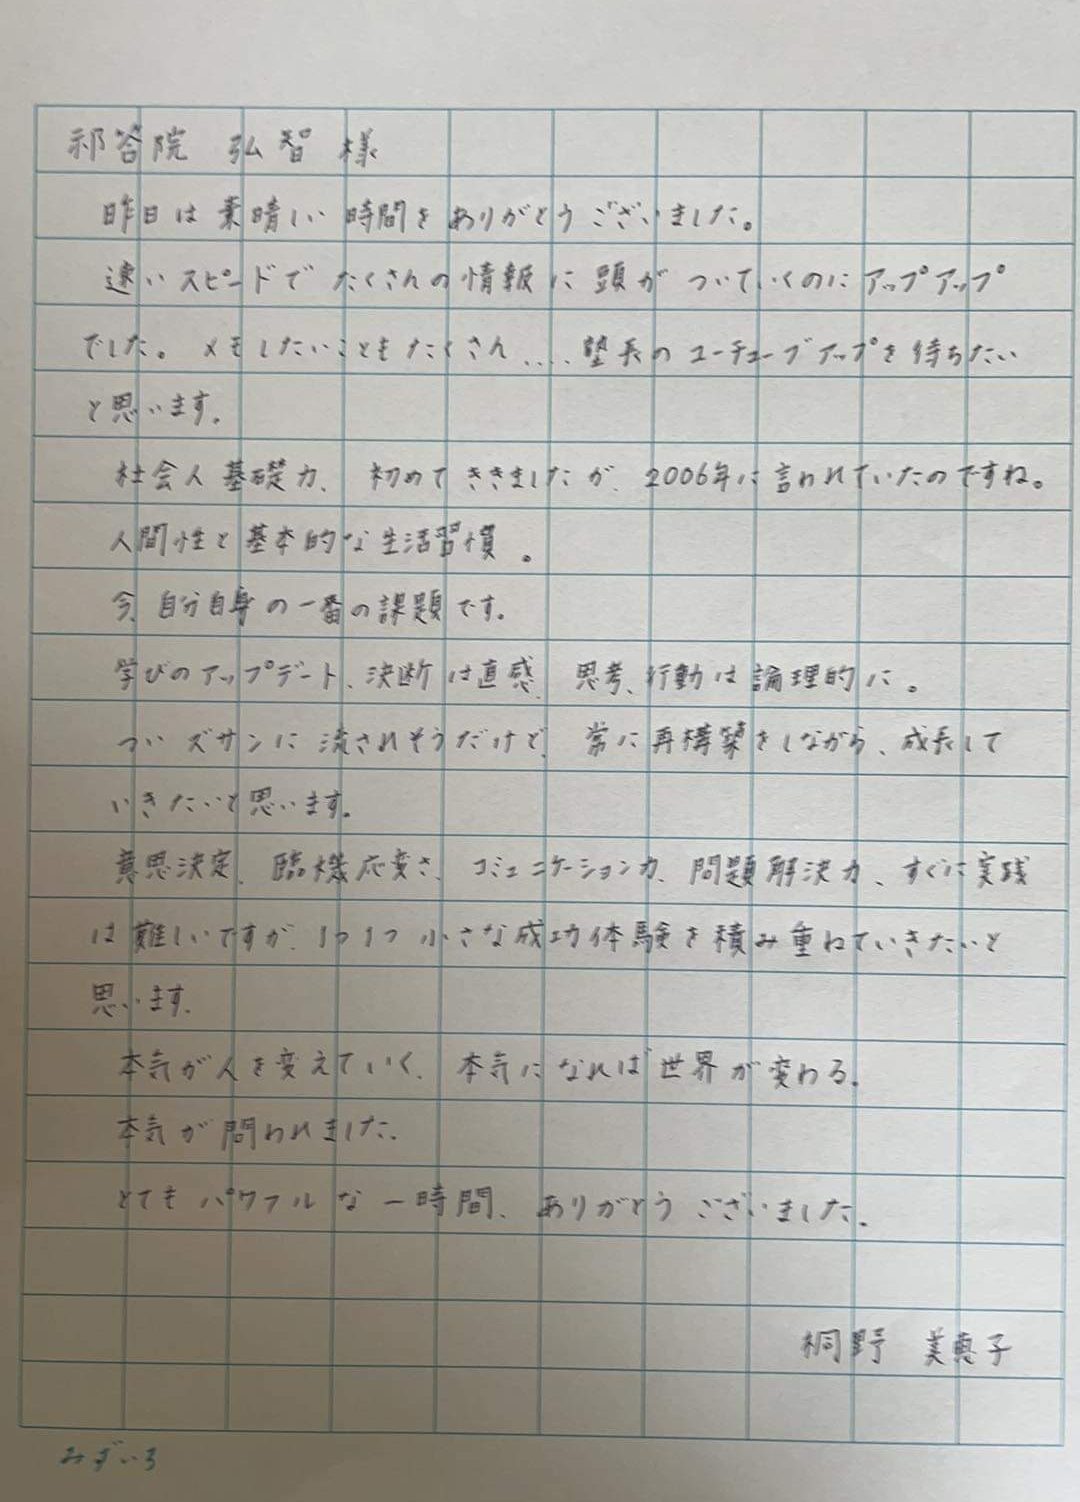 祁答院 弘智 様
昨日は素晴しい時間をありがとうございました。
速いスピードでたくさんの情報に頭がついていくのにアップアップ
でした。メモしたいこともたくさん....塾長のユーチューブアップを待ちたい
と思います。
社会人基礎力、初めてききましたが、2006年に言われていたのですね。
人間性と基本的な生活習慣。
今、自分自身の一番の課題です。
学びのアップデート、決断は直感、思考、行動は論理的に。
ついズサンに流されそうだけど、常に再構築をしながら、成長して
いきたいと思います。
意思決定、臨機応変さ、コミュニケーション力、問題解決力、すぐに実践
は難しいですが、1つ1つ小さな成功体験を積み重ねていきたいと
思います。
本気が人を変えていく、本気になれば世界が変わる。
本気が問われました。
とてもパワフルな一時間、ありがとうございました。
桐野 美恵子
みずいろ